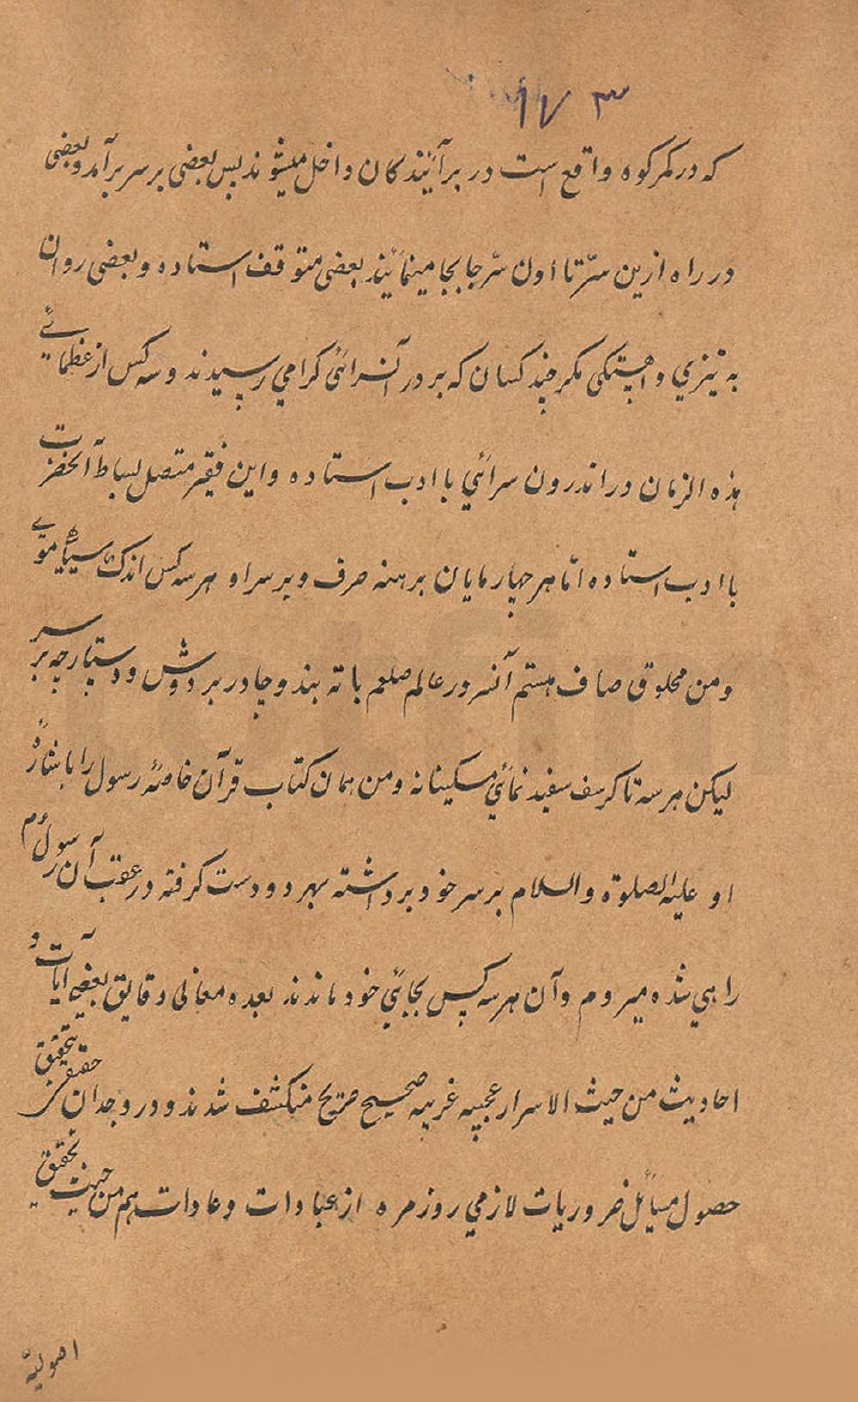 ۱۷۳
که در کمر کوه واقع است در برآئیندکان داخل میشوند پس بعضی بر سر برآمد و بعضی
در راه ازین سّر تا اون سّر جا بجا مینمائیند بعضی متوقف استاده و بعضی روان
به تیزي و اهستکی مکر چند کسان که بر در آنسرائی کرامي رسیدند و سه کس از عظمائے
هذه الزمان در اندرون سرائي با ادب استاده و این فقیر متصل بساط آنحضرت
با ادب استاده امّا هر چهار مایان برهنه صرف و بر سر او هر سه کس اندک سیاهی موے
و من محلوق صاف هستم آنسرور عالم صلعم با ته بند و چادر بر دوش و دستارچه بر سر
لیکن هر سه تا کرسف سفید نمائي مسکینانه و من همان کتاب قرآن خاصهٔ رسول را باشارهٔ
او علیه الصلوة والسلام بر سر خود برداشته بهر دو دست کرفته در عقب آن رسول م
راهي شده میروم و آن هر سه کس بجائي خود ماندند بعده معانی دقایق بعضی آیات و
احادیث من حیث الاسرار عجیبه غریبه صحیح صریح منکشف شدند و در وجدان تحقیق
حصول مسائل ضروریات لازمي روزمره از عبادات و عادات هم من حیث تحقیق
اصولیه